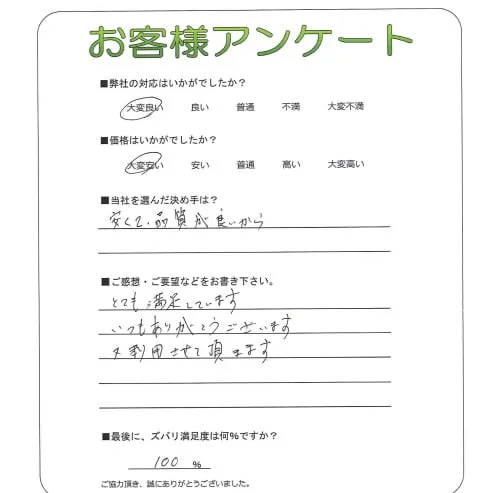 お客様アンケート
■弊社の対応はいかがでしたか?
大変良い 良い 普通 不満 大変不満
■価格はいかがでしたか?
大変安い 安い 普通 高い 大変高い
■当社を選んだ決め手は?
安くて、品質が良いから
■ご感想・ご要望などをお書き下さい。
とても満足しています
いつもありがとうございます
又利用させて頂きます
■最後に、ズバリ満足度は何%ですか?
100 %
ご協力頂き、誠にありがとうございました。